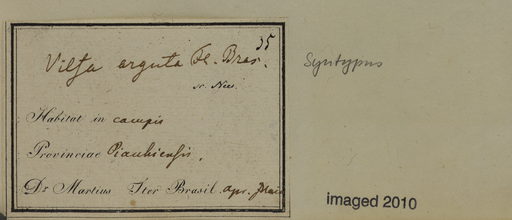 35
Vilfa arguta Fl. Bras.
v. Nees.
Syntypus
Habitat in campis
Provinciae Piauhiensis.
Dr Martius Iter Brasil. apr.
imaged 2010